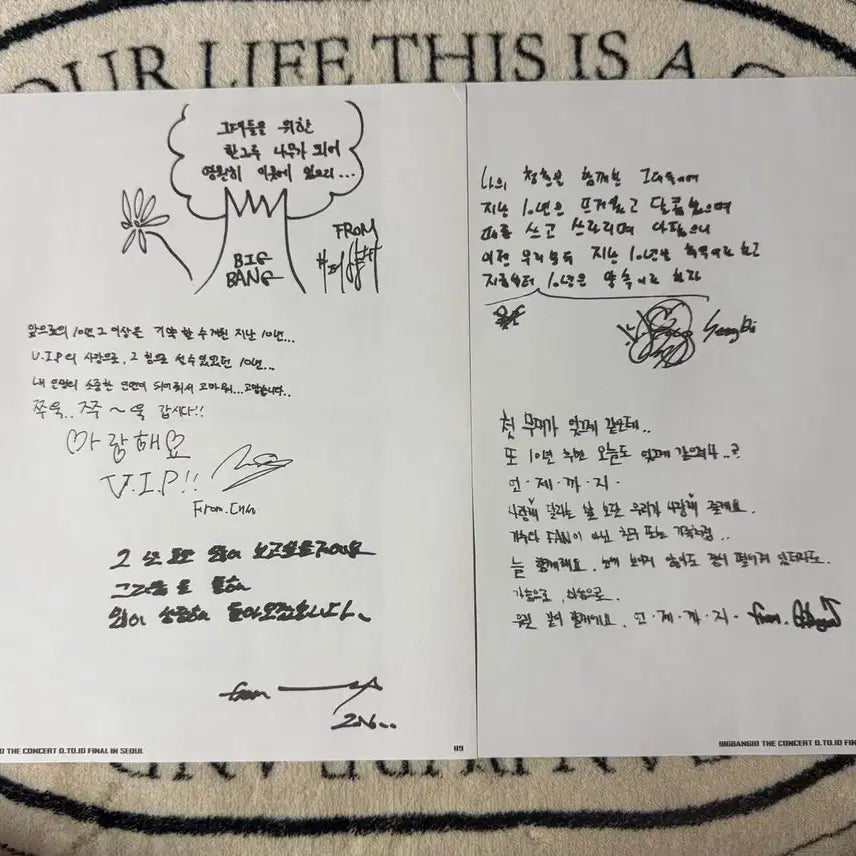 OUR LIFE THIS IS A
그대들을 위한
한그루 나무가 되어
영원히 이곳에 있으리...
BIG
BANG
FROM
앞으로의 10년 그 이상을 기약할 수 있게된 지난 10년...
V.I.P의 사랑으로, 그 힘으로 설 수 있었던 10년...
내 인생의 소중한 인연이 되어줘서 고마워...고맙습니다..
쭈욱.. 쭈욱 ~ 욱 갑시다!!
♡사랑해요♡
V.I.P!!
From.
그 누구보다 많이 보고싶을거에요
그리움을
많이 성장해 돌아오겠습니다.
from
나의 청춘을 함께한 그대들에게
지난 10년은 뜨거웠고 달콤했으며
때론 쓰고 쓰라리며 아팠으니
이젠 우리 모두 지난 10년을 추억이라 하고
지금부터 10년은 약속이라 하자
첫 무대가 엊그제 같은데..
또 10년 후면 오늘도 엊그제 같으려나..?
언·제·까·지·
사랑해 달라는 말 보단 우리가 사랑해 줄게요.
가수다 FAN이 아닌 친구 또는 가족처럼..
늘 함께해요. 눈에 보이지 않아도 멀리 떨어져 있더라도.
가슴으로, 마음으로.
우린 같이 할거에요. 언·제·까·지· from.
THE CONCERT 0.TO.10 FINAL IN SEOUL
119
BIGBANG10 THE CONCERT 0.TO.10